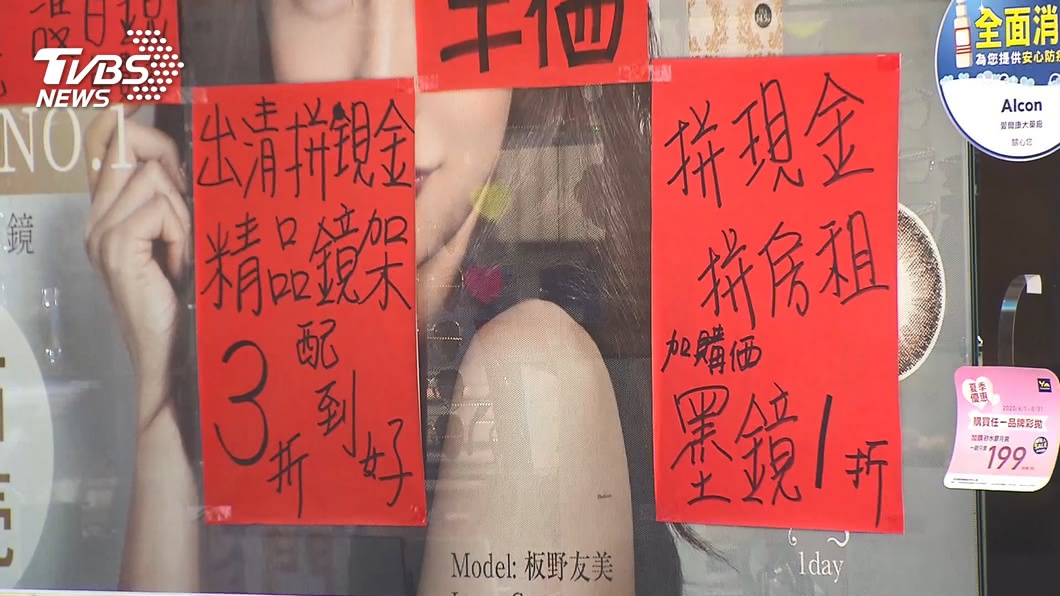 TVBS
NEWS
半価
NO.1
鏡
出清拼現金
精品鏡架
配到好
3折
拼現金
拼房租
加購価
墨鏡1折
全面消
為您提供安心防疫
Alcon
愛爾康大藥廠
關心您
夏季
優惠
2020/6/1-8/31
購買任一品牌彩拋
199
Model: 板野友美
1day